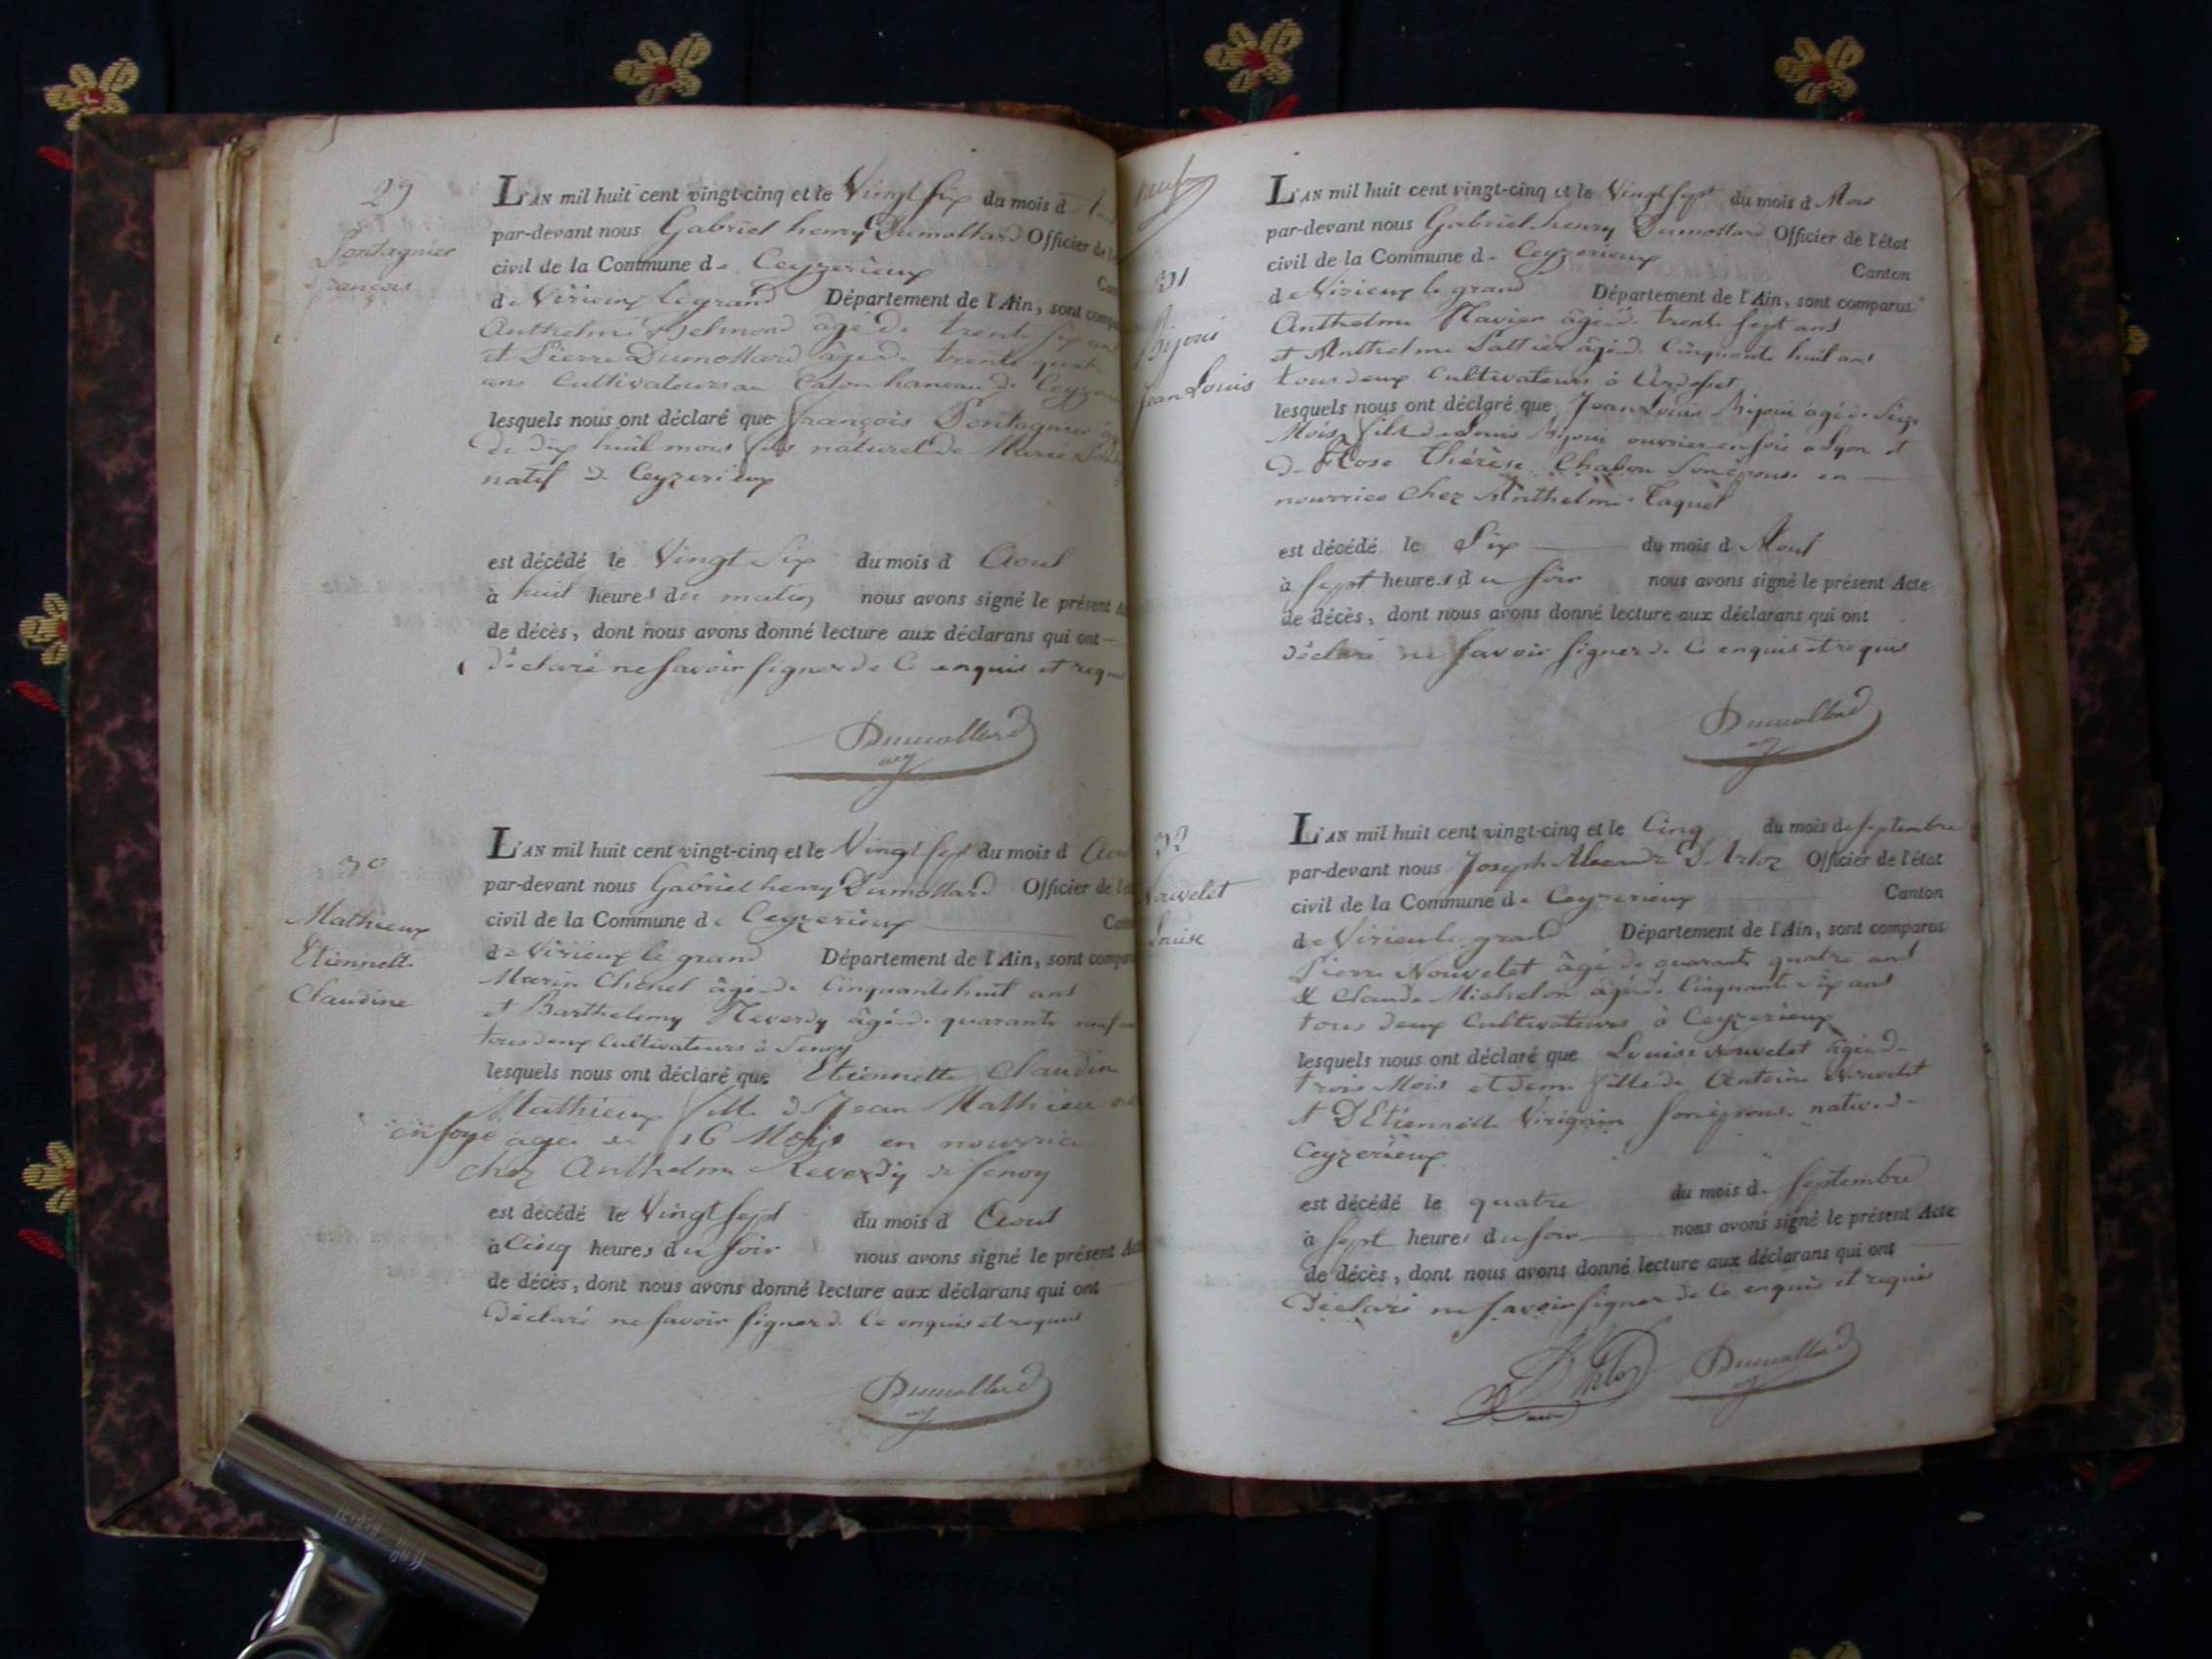 29
françois
L'AN mil huit cent vingt-cinq et le Vingt six du mois d
par-devant nous Gabriel henry Dumollard Officier de l'é
civil de la Commune de Ceyzerieux
de Virieux le grand Département de l'Ain, sont compa
Anthelme âgé de trente six ans
et Pierre Dumollard âgé de trente quatre
ans Cultivateurs au Caton hameau de Ceyze
lesquels nous ont déclaré que françois
de dix huit mois fils naturel de Marie
natif de Ceyzerieux
est décédé le Vingt Six du mois d Aout
à huit heures du matin nous avons signé le présent A
de décès, dont nous avons donné lecture aux déclarans qui ont
déclaré ne savoir signer de ce enquis et requis
Dumollard
30
Mathieux
Etiennette
Claudine
L'AN mil huit cent vingt-cinq et le Vingt sept du mois d Aout
par-devant nous Gabriel henry Dumollard Officier de l'é
civil de la Commune de Ceyzerieux
de Virieux le grand Département de l'Ain, sont compa
Marin Chenel âgé de Cinquante huit ans
et Barthelemy Reverdy âgé de quarante neuf
tous deux Cultivateurs à Senoy
lesquels nous ont déclaré que Etiennette Claudine
Mathieux fille de Jean Mathieu
agée de 16 Mois en nourrice
chez Anthelme Reverdy de Senoy
est décédé le Vingt sept du mois d Aout
à Cinq heures du soir nous avons signé le présent Ac
de décès, dont nous avons donné lecture aux déclarans qui ont
déclaré ne savoir signer de ce enquis et requis
Dumollard
31
Bijoui
Jean Louis
L'AN mil huit cent vingt-cinq et le Vingt sept du mois d
par-devant nous Gabriel henry Dumollard Officier de l'état
civil de la Commune de Ceyzerieux Canton
de Virieux le grand Département de l'Ain, sont comparus
Anthelme âgé de trente sept ans
et Anthelme âgé de Cinquante huit ans
tous deux Cultivateurs à Ardosset
lesquels nous ont déclaré que Jean Louis Bijoui âgé de Seize
Mois fils de Louis Bijoui ouvrier en soie a Lyon et
de Rose Thérèse Chabou Son épouse en
nourrice chez Anthelme Taquet
est décédé le Six du mois d Aout
à sept heures du soir nous avons signé le présent Acte
de décès, dont nous avons donné lecture aux déclarans qui ont
déclaré ne savoir signer de ce enquis et requis
Dumollard
32
Nouvelet
Louise
L'AN mil huit cent vingt-cinq et le Cinq du mois de septembre
par-devant nous Joseph D'Arloz Officier de l'état
civil de la Commune de Ceyzerieux Canton
de Virieu le grand Département de l'Ain, sont comparus
Pierre Nouvelet âgé de quarante quatre ans
& Claude Michelon âgé de Cinquante six ans
tous deux Cultivateurs à Ceyzerieux
lesquels nous ont déclaré que Louise Nouvelet âgée de
trois Mois et demi fille de Antoine Nouvelet
et D'Etiennette son épouse native de
Ceyzerieux
est décédé le quatre du mois de septembre
à sept heures du soir nous avons signé le présent Acte
de décès, dont nous avons donné lecture aux déclarans qui ont
déclaré ne savoir signer de ce enquis et requis
D'Arloz Dumollard